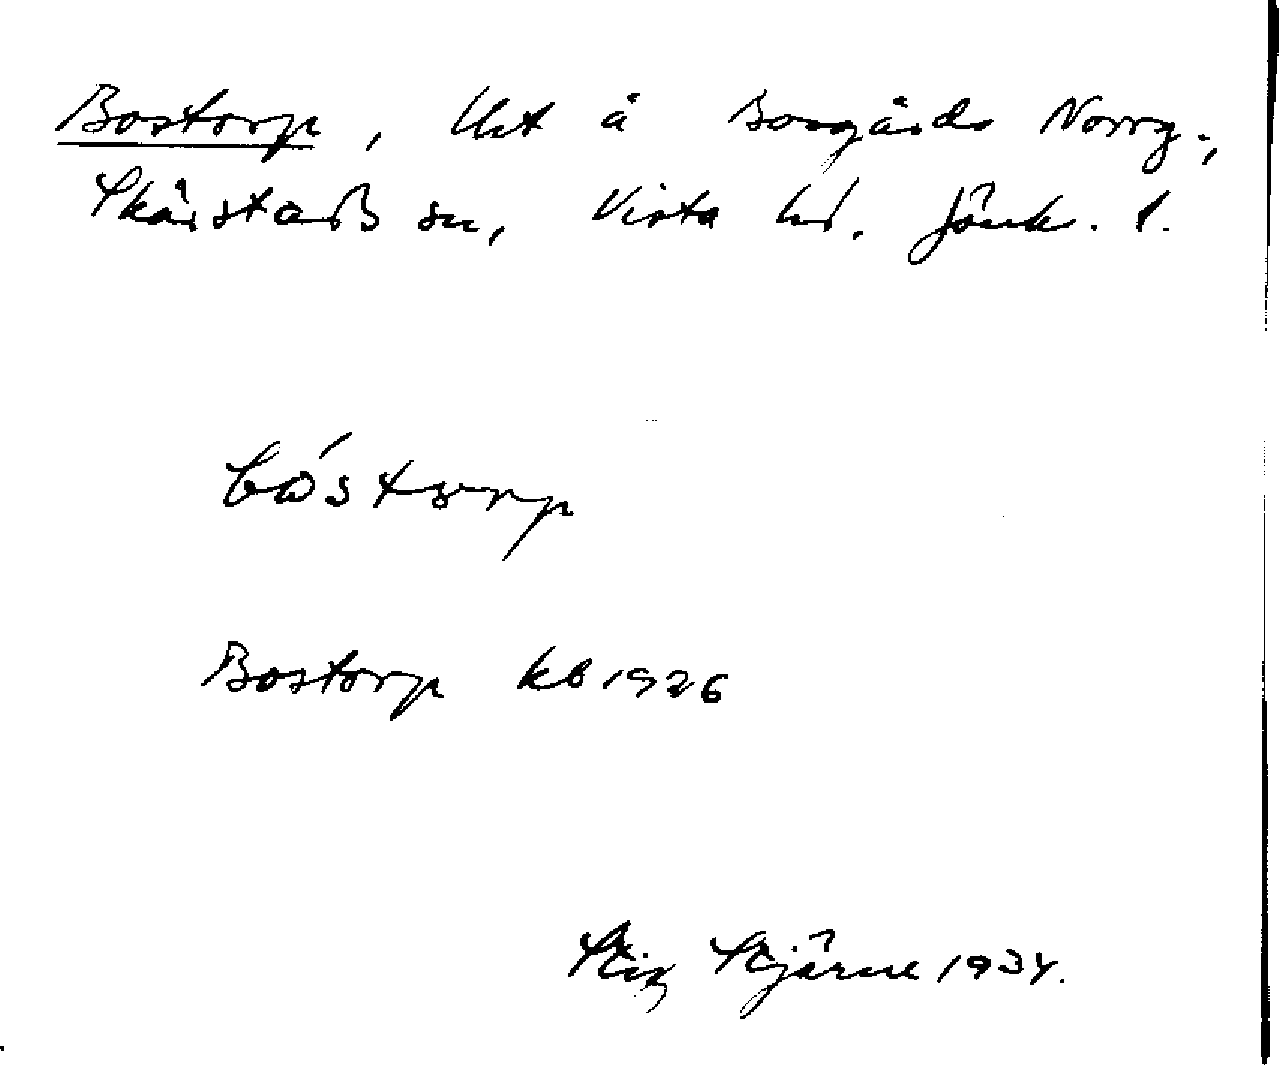 Bostorp, lht å Borgårds Norrg.,
Skärstads sn, Vista hd. Jönk. l.
bóstorp
Bostorp kb 1926
Stig Stjärne 1934.